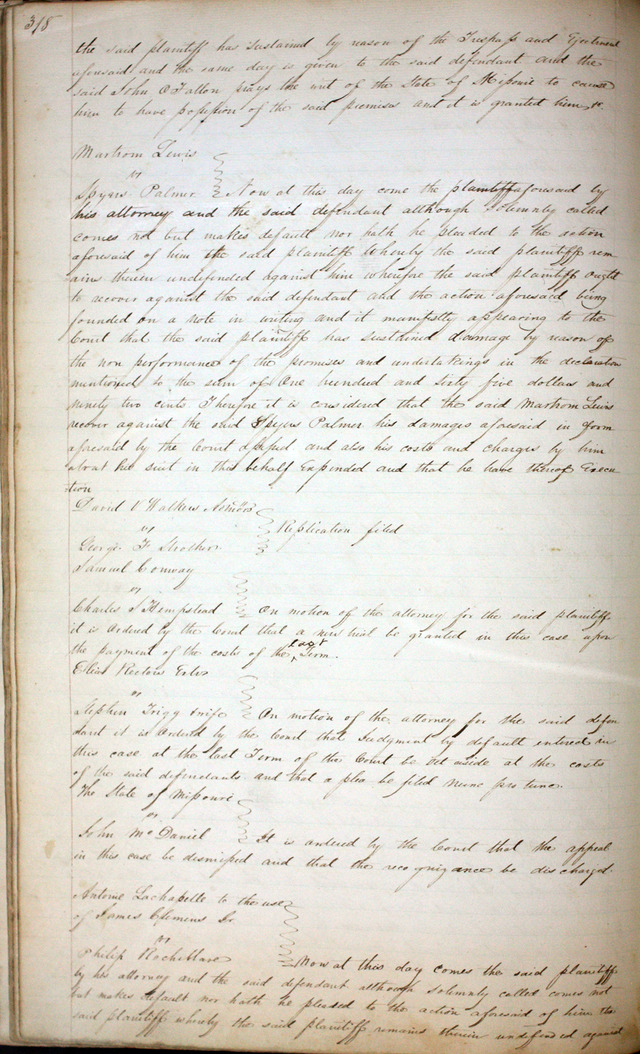 the said plaintiff has sustained by reason of the Trespass and Ejectment
aforesaid and the same day is given to the said defendant and the
said John O Fallon prays the writ of the State of Missouri to cause
him to have possession of the said premises and it is granted him &c
Martrom Lewis
vs
Spyers Palmer Now at this day come the plaintiff aforesaid by
his attorney and the said defendant although solemnly called
comes not but makes default nor hath he pleaded to the action
aforesaid of him the said plaintiff Whereby the said plaintiff rem
ains therein undefended against him wherefore the said plaintiff ought
to recover against the said defendant and the action aforesaid being
founded on a note in writing and it manifestly appearing to the
Court that the said plaintiff has sustained damage by reason of
the non performance of the promises and undertakings in the declaration
mentioned to the sum of One hundred and sixty five dollars and
ninety two cents Therefore it is considered that the said Martrom Lewis
recover against the said Spyers Palmer his damages aforesaid in form
aforesaid by the Court assessed and also his costs and charges by him
about his suit in this behalf Expended and that he have thereof Execu
tion
David V Walkers
vs Replication filed
George F Strother
Samuel Conway
vs
Charles S Hempstead On motion of the attorney for the said plaintiff
it is Ordered by the Court that a new trial be granted in this case upon
the payment of the costs of the last Term.
Elias Rectors
vs
Stephen Trigg & wife On motion of the attorney for the said defen
dant it is Ordered by the Court that Judgment by default entered in
this case at the last Term of the Court be set aside at the costs
of the said defendants and that a plea be filed nunc pro tunc.
The State of Missouri
vs
John McDaniel It is ordered by the Court that the appeal
in this case be dismissed and that the recognizance be discharged
Antoine Lachapelle to the use
of James Clemens Jr
vs
Philip Rocheblave Now at this day comes the said plaintiff
by his attorney and the said defendant although solemnly called comes not
but makes default nor hath he pleaded to the action aforesaid of him the
said plaintiff whereby the said plaintiff remains therein undefended against